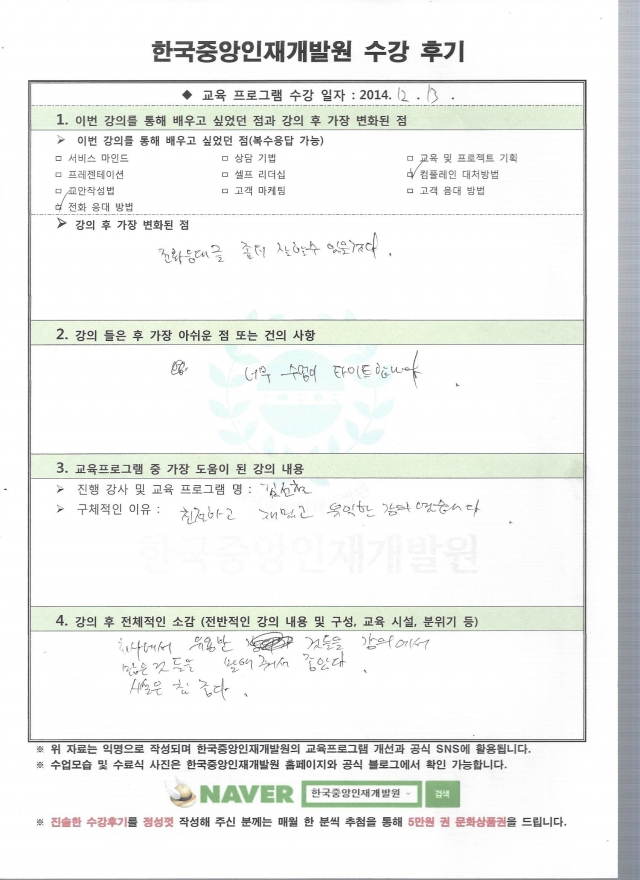 한국중앙인재개발원 수강 후기
◆ 교육 프로그램 수강 일자 : 2014. 12 . 13 .
1. 이번 강의를 통해 배우고 싶었던 점과 강의 후 가장 변화된 점
➢ 이번 강의를 통해 배우고 싶었던 점(복수응답 가능)
□ 서비스 마인드 □ 상담 기법 □ 교육 및 프로젝트 기획
□ 프레젠테이션 □ 셀프 리더십 □ 컴플레인 대처방법
□ 교안작성법 □ 고객 마케팅 □ 고객 응대 방법
□ 전화 응대 방법
➢ 강의 후 가장 변화된 점
전화응대를 좀더 잘할수 있을거다 .
2. 강의 들은 후 가장 아쉬운 점 또는 건의 사항
너무 수업이 타이트합니다 .
3. 교육프로그램 중 가장 도움이 된 강의 내용
➢ 진행 강사 및 교육 프로그램 명 :
➢ 구체적인 이유 : 친절하고 재밌고 유익한 강의 였습니다 .
한국중앙인재개발원
4. 강의 후 전체적인 소감 (전반적인 강의 내용 및 구성, 교육 시설, 분위기 등)
것들을 강의에서
많은것들을 말해 줘서 좋았다 .
시설은 참 좋다 .
※ 위 자료는 익명으로 작성되며 한국중앙인재개발원의 교육프로그램 개선과 공식 SNS에 활용됩니다.
※ 수업모습 및 수료식 사진은 한국중앙인재개발원 홈페이지와 공식 블로그에서 확인 가능합니다.
NAVER 한국중앙인재개발원 검색
※ 진솔한 수강후기를 정성껏 작성해 주신 분께는 매월 한 분씩 추첨을 통해 5만원 권 문화상품권을 드립니다.